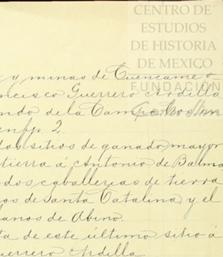 CENTRO DE
ESTUDIOS
DE HISTORIA
DE MEXICO
FUNDACIÓN
y minas de Cuencamé
ncisco Guerrero Ardilla
ndo de la Campa
enfy 2.
dos sitios de ganado mayor
tierra á Antonio de Balma
dos caballerias de tierra
gos de Santa Catalina y el
anos de Abino.
ta de este último sitio á
uerrero Ardilla